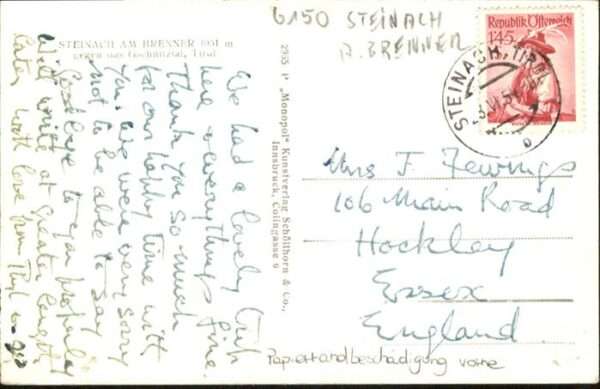 6150 STEINACH
A. BRENNER
STEINACH AM BRENNER 1051 m
gegen das Gschnitztal, Tirol
Republik Österreich
1'45
STEINACH, TIROL
2935 P „Monopol" Kunstverlag Schöllhorn & Co.,
Innsbruck, Colingasse 9
We had a lovely trip
here & everything's fine.
Thank you so much
for our happy time with
you. We were very sorry
not to be able to say
Good-bye to you properly
Will write at greater length
later with love from
Mrs F. Fewings
106 Main Road
Hockley
Essex
England
Papierrandbeschädigung vorne